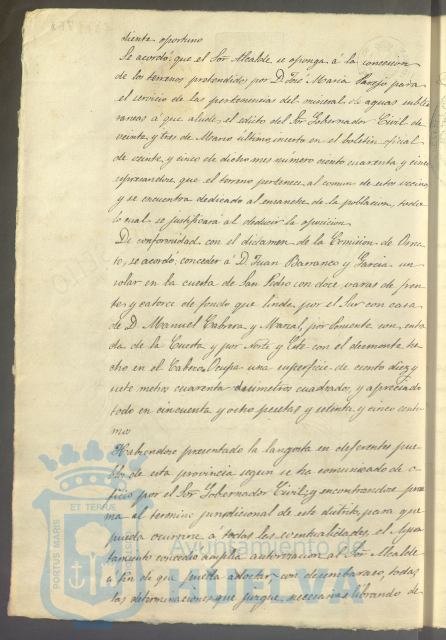 diente oportuno
Se acordó: que el Sor Alcalde se oponga á la concesion
de los terrenos pretendidos por D. José Maria Parejo para
el servicio de las pertenencias del mineral de aguas subter
raneas á que alude el edicto del Sor Gobernador Civil de
veinte y tres de Marzo último, inserto en el boletin oficial
de veinte y cinco de dicho mes número ciento cuarenta y cinco
espresandose que el terreno pertenece al comun de estos vecinos
y se encuentra dedicado al ensanche de la poblacion, todo
lo cual se justificará al deducir la oposicion.
De conformidad con el dictamen de la Comision de Orna
to, se acordó conceder á D. Juan Barranco y Garcia un
solar en la cuesta de San Pedro con doce varas de fren
te y catorce de fondo que linda por el Sur con casa
de D. Manuel Cabrera y Marzal, por Poniente con entra
da de la Cuesta y por Norte y Este con el desmonte he
cho en el Cabezo. Ocupa una superficie de ciento diez y
siete metros cuarenta decimetros cuadrados, y apreciado
todo en cincuenta y ocho pesetas y setenta y cinco centi
mos
Habiendose presentado la langosta en diferentes pue
blos de esta provincia segun se ha comunicado de o
ficio por el Sor Gobernador Civil; y encontrandose procsi
ma al termino jurisdicional de este distrito, para que
pueda ocurrirse á todas las eventualidades, el Ayun
tamiento concedió amplia autorizacion al Sor Alcalde
á fin de que pueda adoptar con desembarazo, todas
las determinaciones que juzgue necesarias librando de
PORTUS MARIS
ET TERRE
Ayuntamiento de
HUELVA